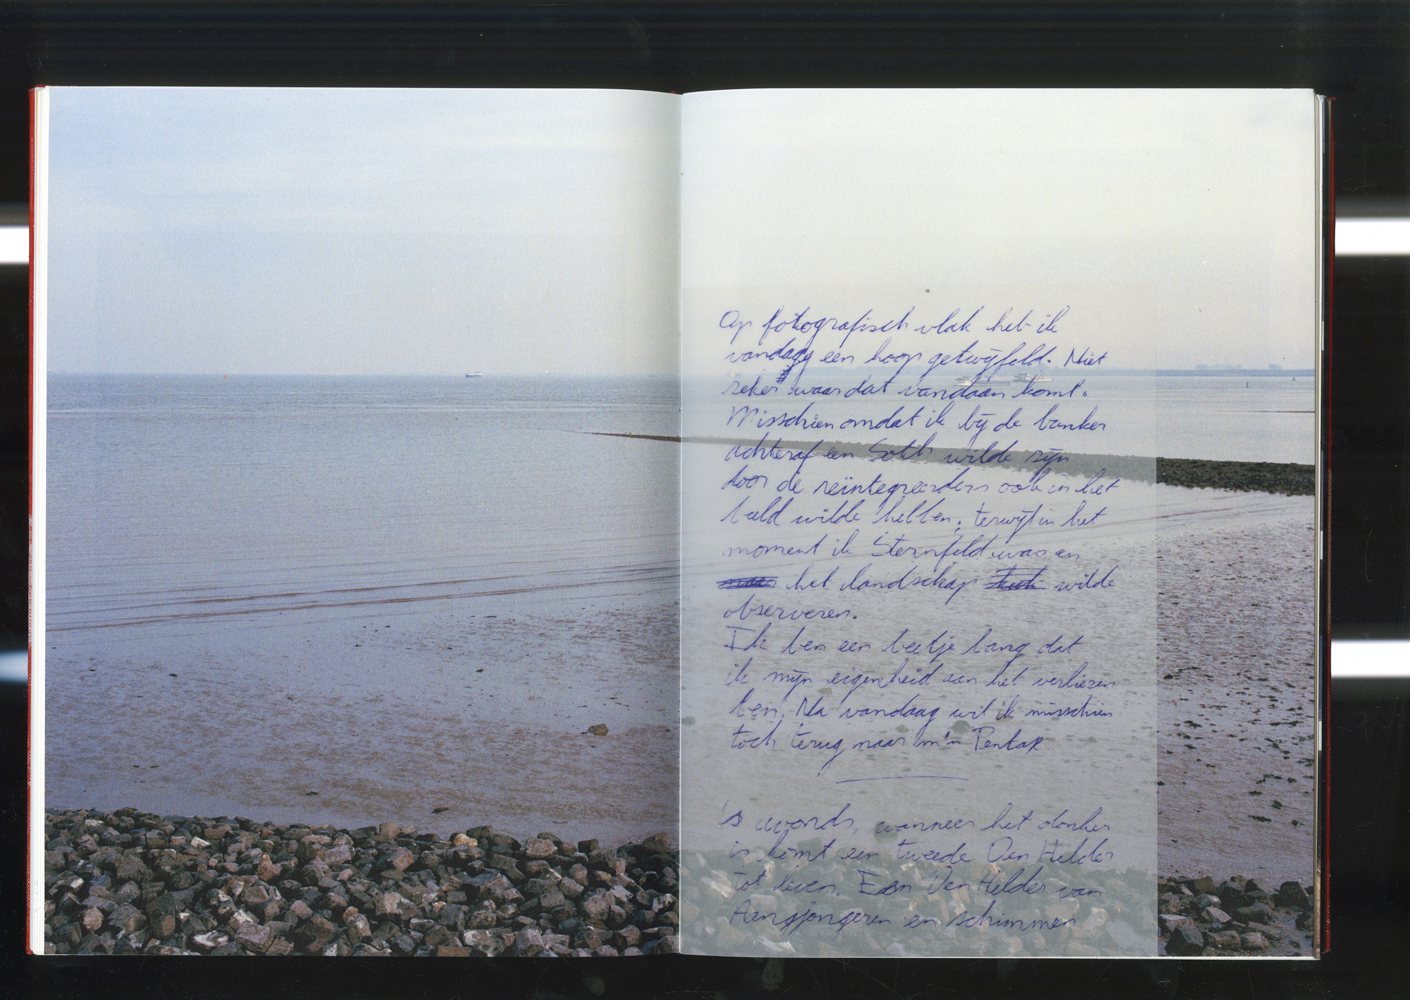 Op fotografisch vlak heb ik
vandaag een hoop getwijfeld. Niet
zeker waar dat vandaan komt.
Misschien omdat ik bij de bunker
achteraf een Soth wilde zijn
door de reïntegreerders ook in het
beeld wilde hebben, terwijl in het
moment ik Sternfeld was en
het landschap wilde
observeren.
Ik ben een beetje bang dat
ik mijn eigenheid aan het verliezen
ben. Na vandaag wil ik misschien
toch terug naar m'n Pentax
's avonds, wanneer het donker
is komt een tweede Den Helder
tot leven. Een Den Helder van
hangjongeren en schimmen